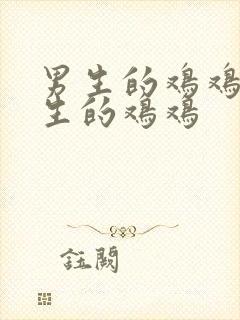 男生的鸡鸡
生的鸡鸡
註闕